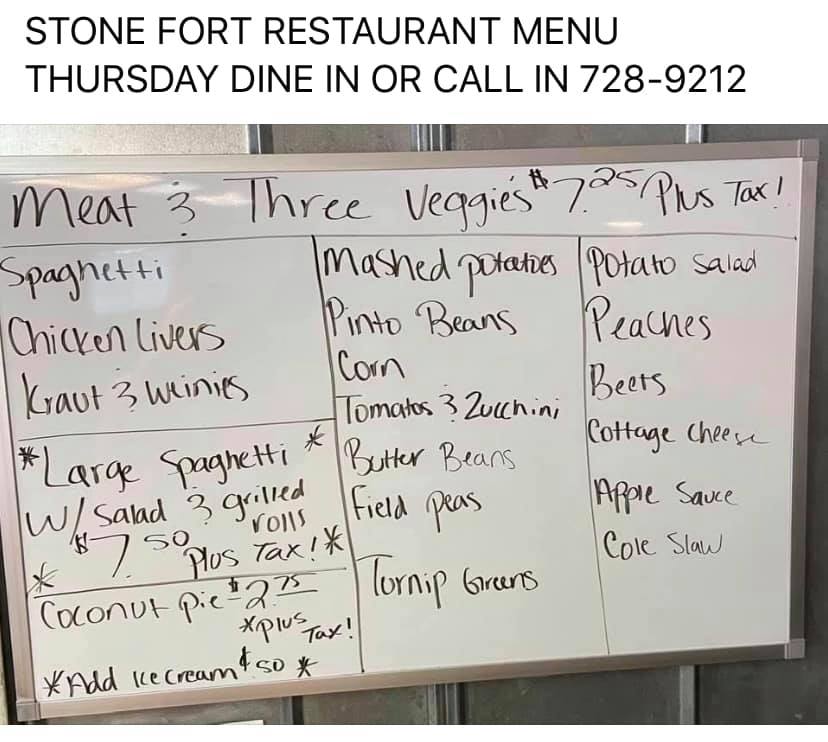 STONE FORT RESTAURANT MENU
THURSDAY DINE IN OR CALL IN 728-9212
Meat & Three Veggies $7.25 Plus Tax!
Spaghetti
Chicken Livers
Kraut & Weinies
*Large Spaghetti *
W/ Salad & grilled
rolls
* $7.50 Plus Tax! *
Coconut Pie $2.75
*plus Tax!
*Add Ice Cream $.50 *
Mashed potatoes
Pinto Beans
Corn
Tomatos & Zucchini
Butter Beans
Field peas
Turnip Greens
Potato Salad
Peaches
Beets
Cottage Cheese
Apple Sauce
Cole Slaw